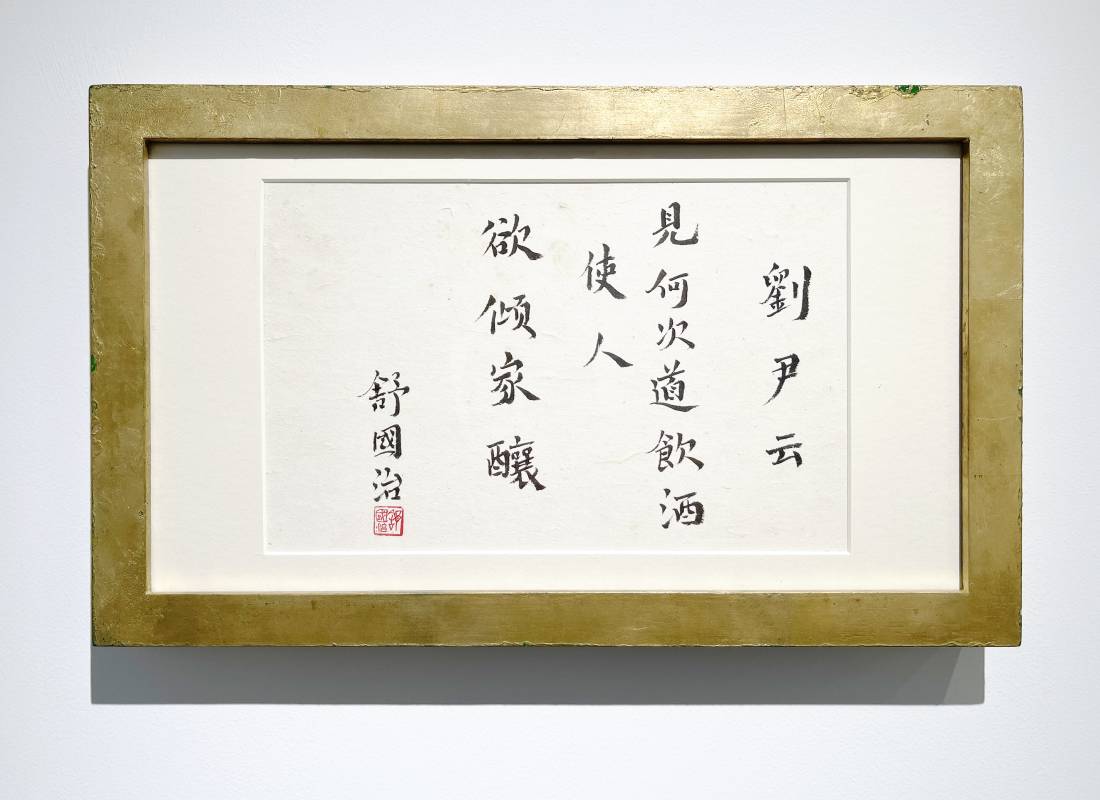 劉尹云
見何次道飲酒
使人
欲傾家釀
舒國治